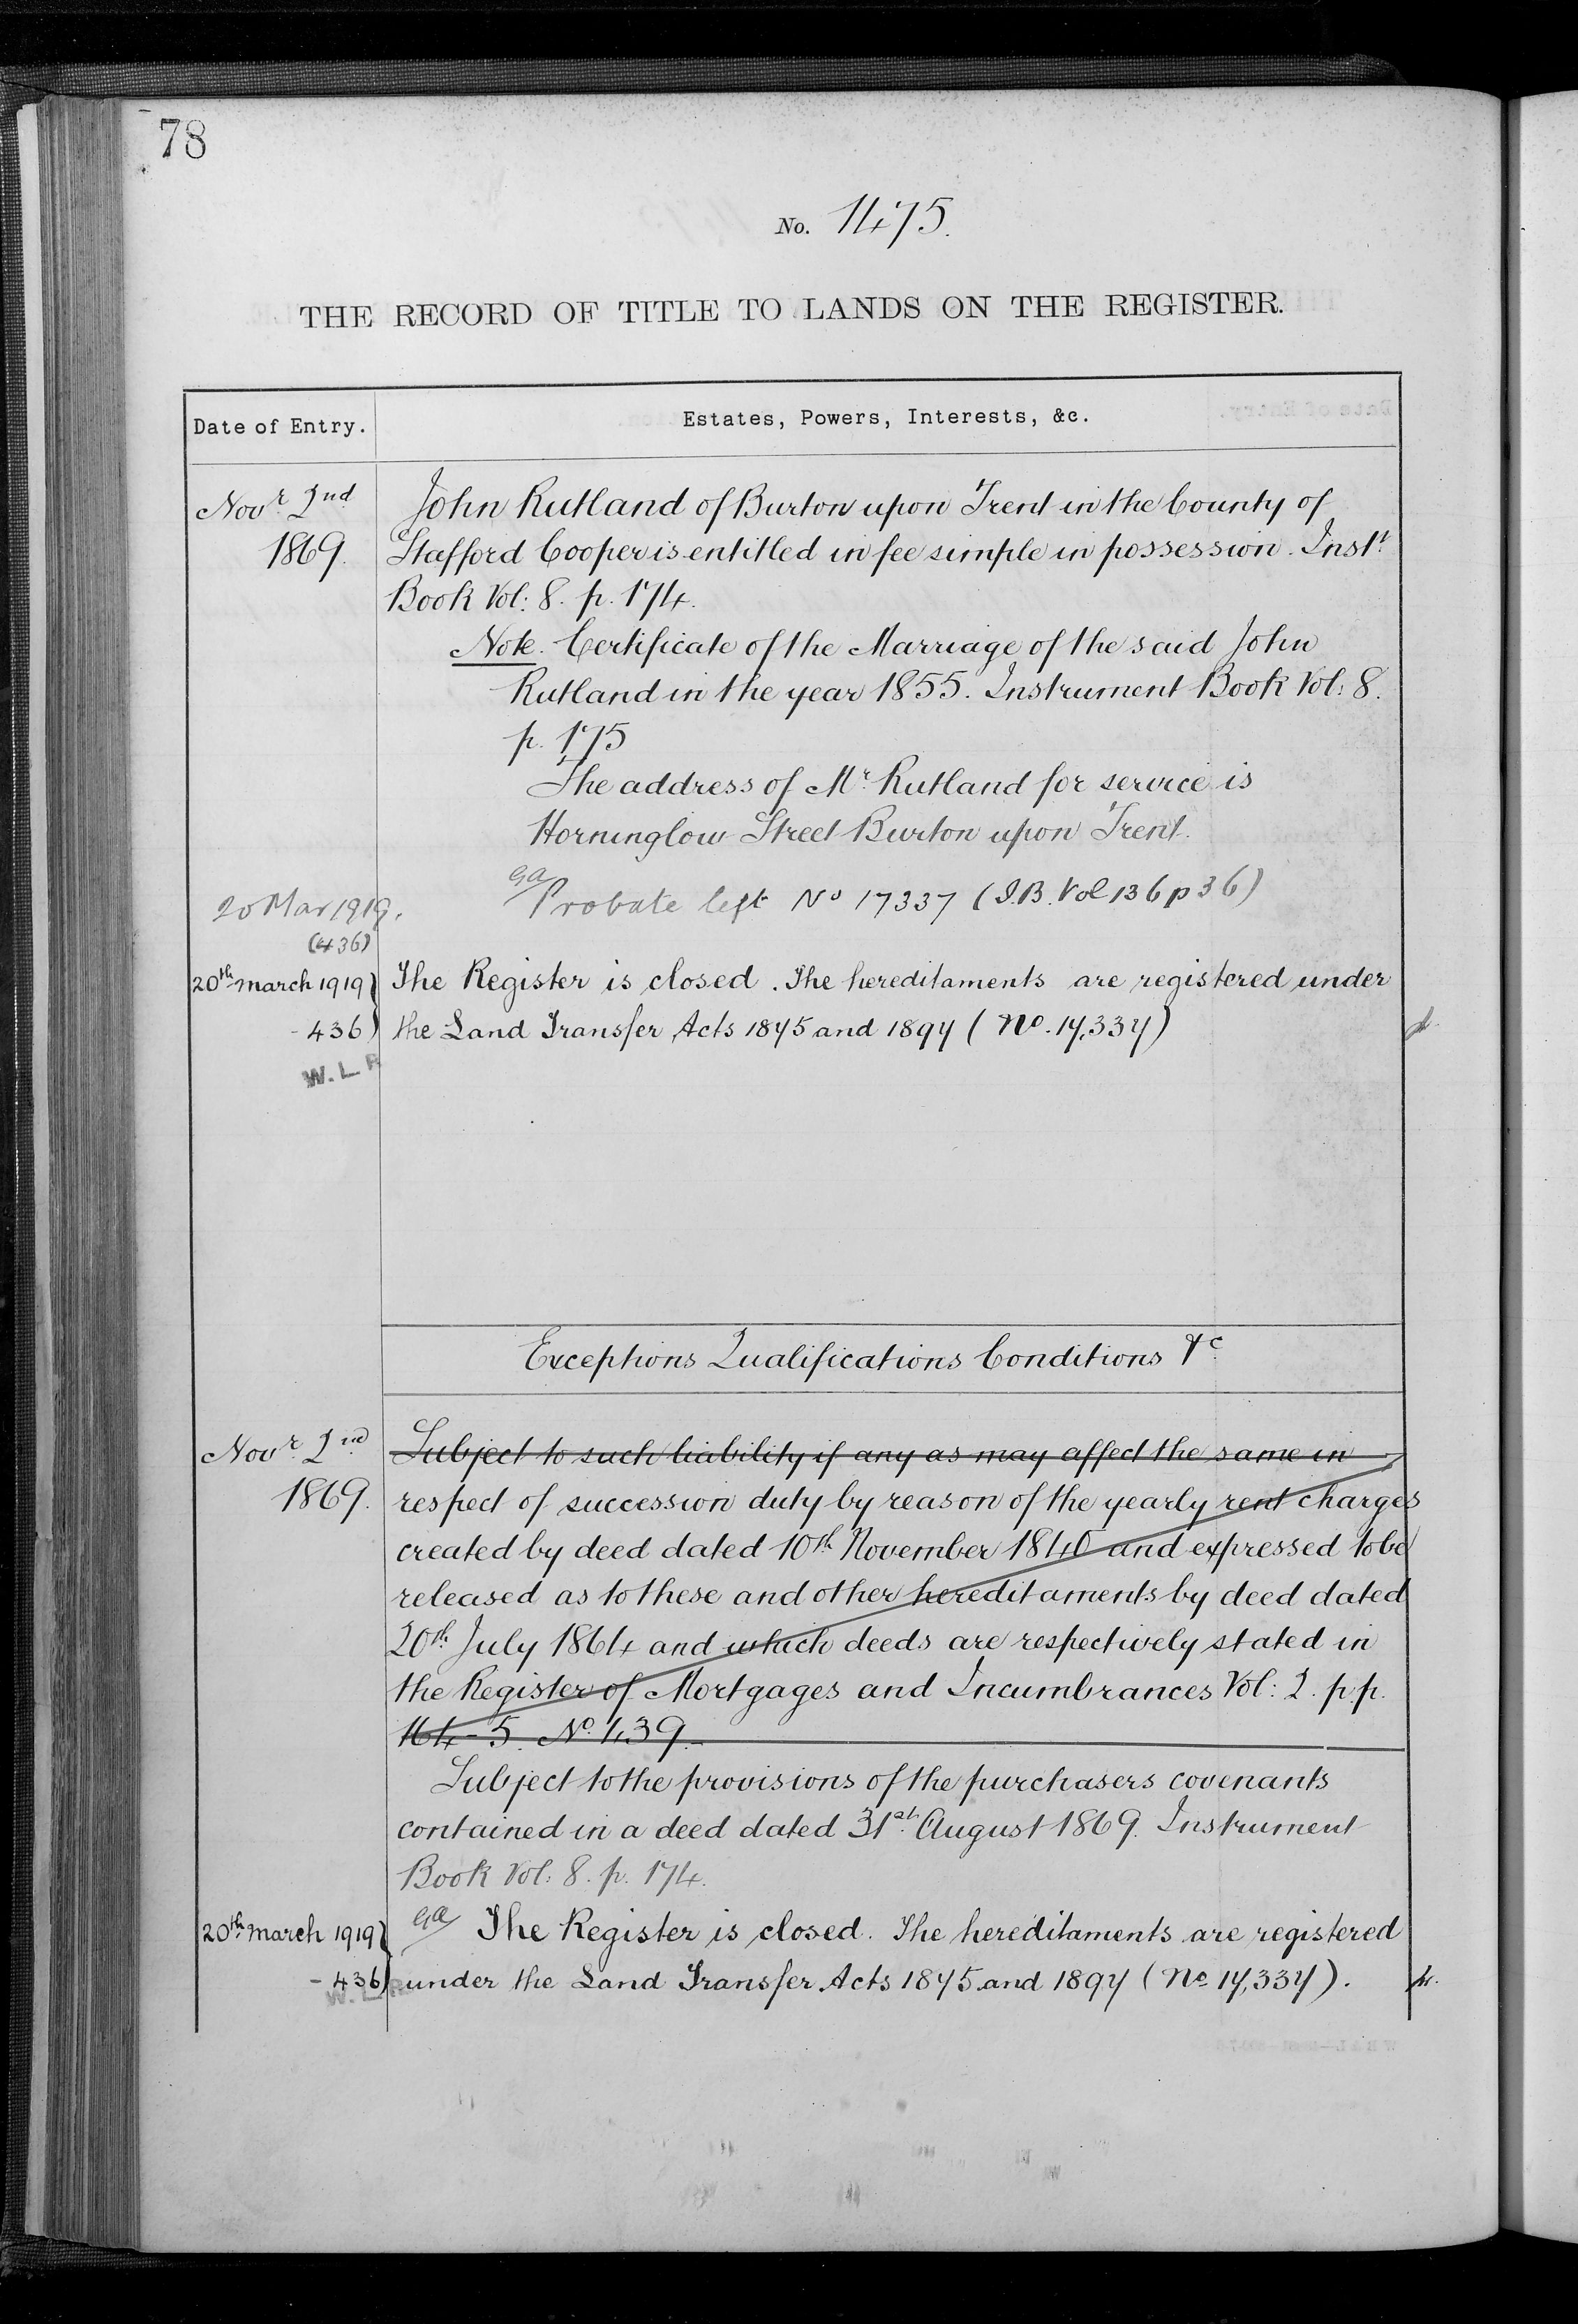 78
No. 1475.
THE RECORD OF TITLE TO LANDS ON THE REGISTER.
Date of Entry.
Estates, Powers, Interests, &c.
Novr 2nd
1869.
John Rutland of Burton upon Trent in the County of
Stafford Cooper is entitled in fee simple in possession. Instt
Book Vol: 8. p. 174.
Note. Certificate of the Marriage of the said John
Rutland in the year 1855. Instrument Book Vol: 8.
p. 175
The address of Mr Rutland for service is
Horninglow Street Burton upon Trent.
20 Mar 1919.
(436)
Probate left No 17337 (I.B. Vol 136 p 36)
20th March 1919
- 436
W. L R
The Register is closed. The hereditaments are registered under
the Land Transfer Acts 1875 and 1897 (No. 17,337)
Exceptions Qualifications Conditions &c
Novr 2nd
1869.
Subject to such liability if any as may affect the same in
respect of succession duty by reason of the yearly rent charges
created by deed dated 10th November 1840 and expressed to be
released as to these and other hereditaments by deed dated
20th July 1864 and which deeds are respectively stated in
the Register of Mortgages and Incumbrances Vol: 2. p.p.
164-5. No. 439.
Subject to the provisions of the purchasers covenants
contained in a deed dated 31st August 1869. Instrument
Book Vol: 8. p. 174.
20th March 1919
- 436
W. L R
The Register is closed. The hereditaments are registered
under the Land Transfer Acts 1875 and 1897 (No 17,337).